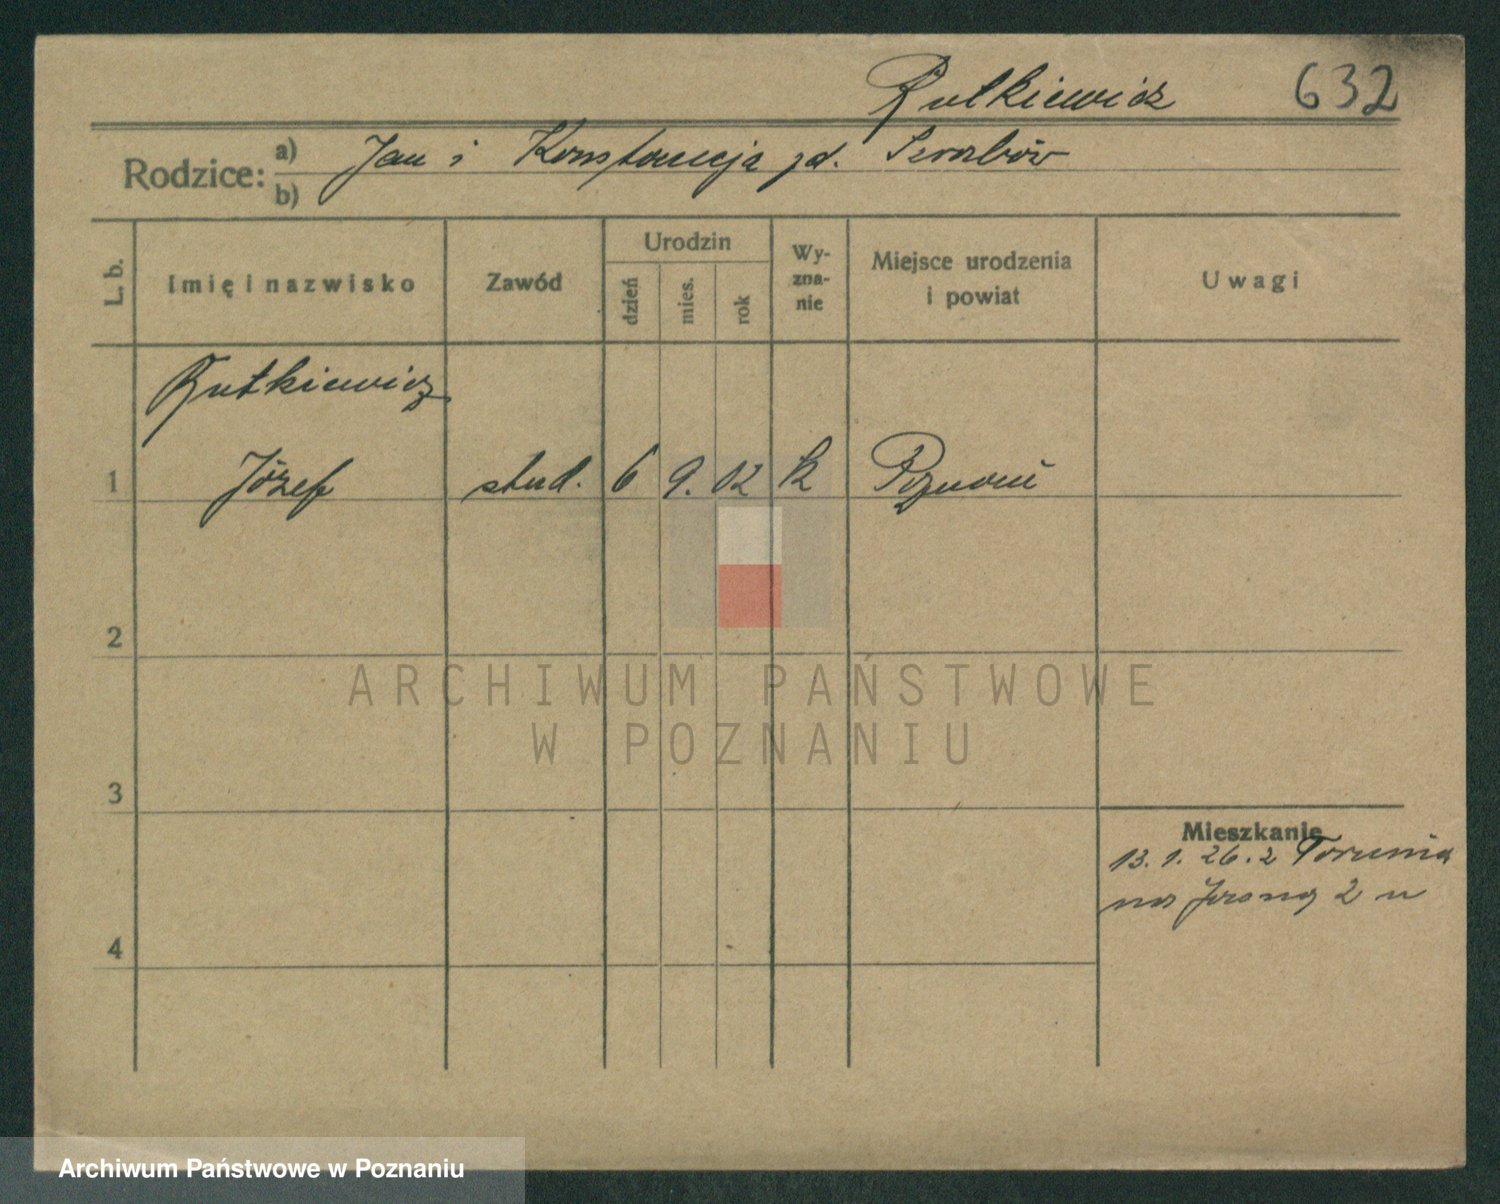 Rutkiewicz 632
Rodzice: a) Jan i Konstancja zd.
b)
L. b. Imię i nazwisko Zawód Urodzin dzień mies. rok Wy-zna-nie Miejsce urodzenia i powiat Uwagi
Rutkiewicz
1 Józef stud. 6 9. 02 k Poznań
2
ARCHIWUM PAŃSTWOWE
W POZNANIU
3
Mieszkanie
13. 1. 26. z Torunia
na 2
4
Archiwum Państwowe w Poznaniu